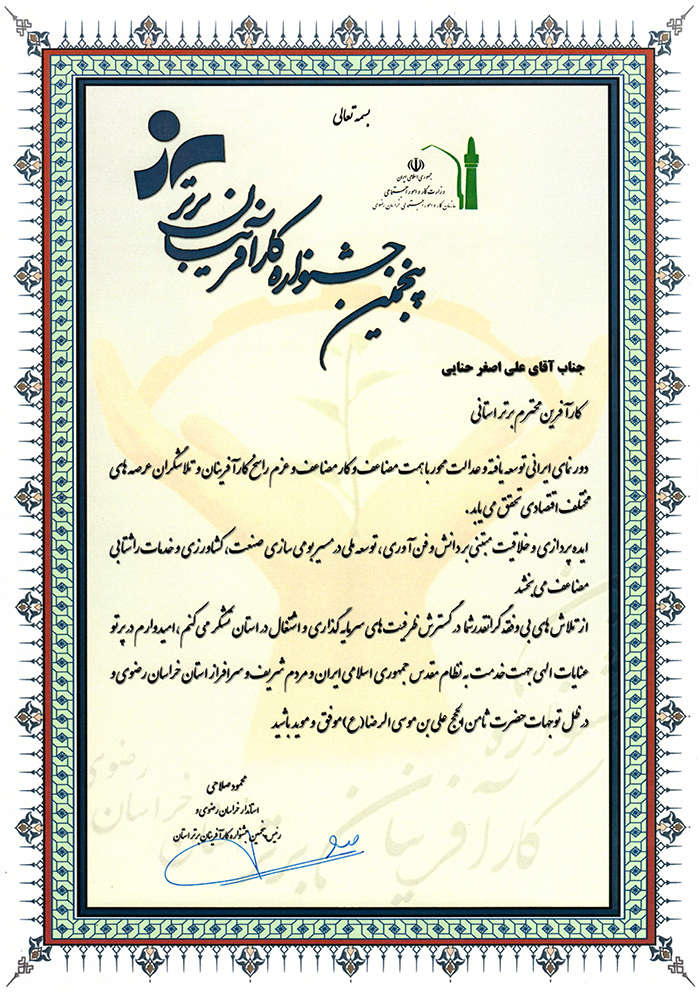 بسمه تعالی
جمهوری اسلامی ایران
وزارت کار و امور اجتماعی
سازمان کار و امور اجتماعی خراسان رضوی
پنجمین جشنواره کارآفرینان برتر
جناب آقای علی اصغر حنایی
کارآفرین محترم برتر استانی
دورنمای ایرانی توسعه یافته و عدالت محور با همت مضاعف و کار مضاعف و عزم راسخ کارآفرینان و تلاشگران عرصه های
مختلف اقتصادی تحقق می یابد.
ایده پردازی و خلاقیت مبتنی بر دانش و فن آوری، توسعه ملی در مسیر بومی سازی صنعت، کشاورزی و خدمات را شتابی
مضاعف می بخشد
از تلاش های بی وقفه گرانقدر شما در گسترش ظرفیت های سرمایه گذاری و اشتغال در استان تشکر می کنم، امیدوارم در پرتو
عنایات الهی جهت خدمت به نظام مقدس جمهوری اسلامی ایران و مردم شریف و سرافراز استان خراسان رضوی و
در ظل توجهات حضرت ثامن الحجج علی بن موسی الرضا (ع) موفق و موید باشید
محمود صلاحی
استاندار خراسان رضوی و
رئیس پنجمین جشنواره کارآفرینان برتر استان
کارآفرینان برتر
خراسان رضوی